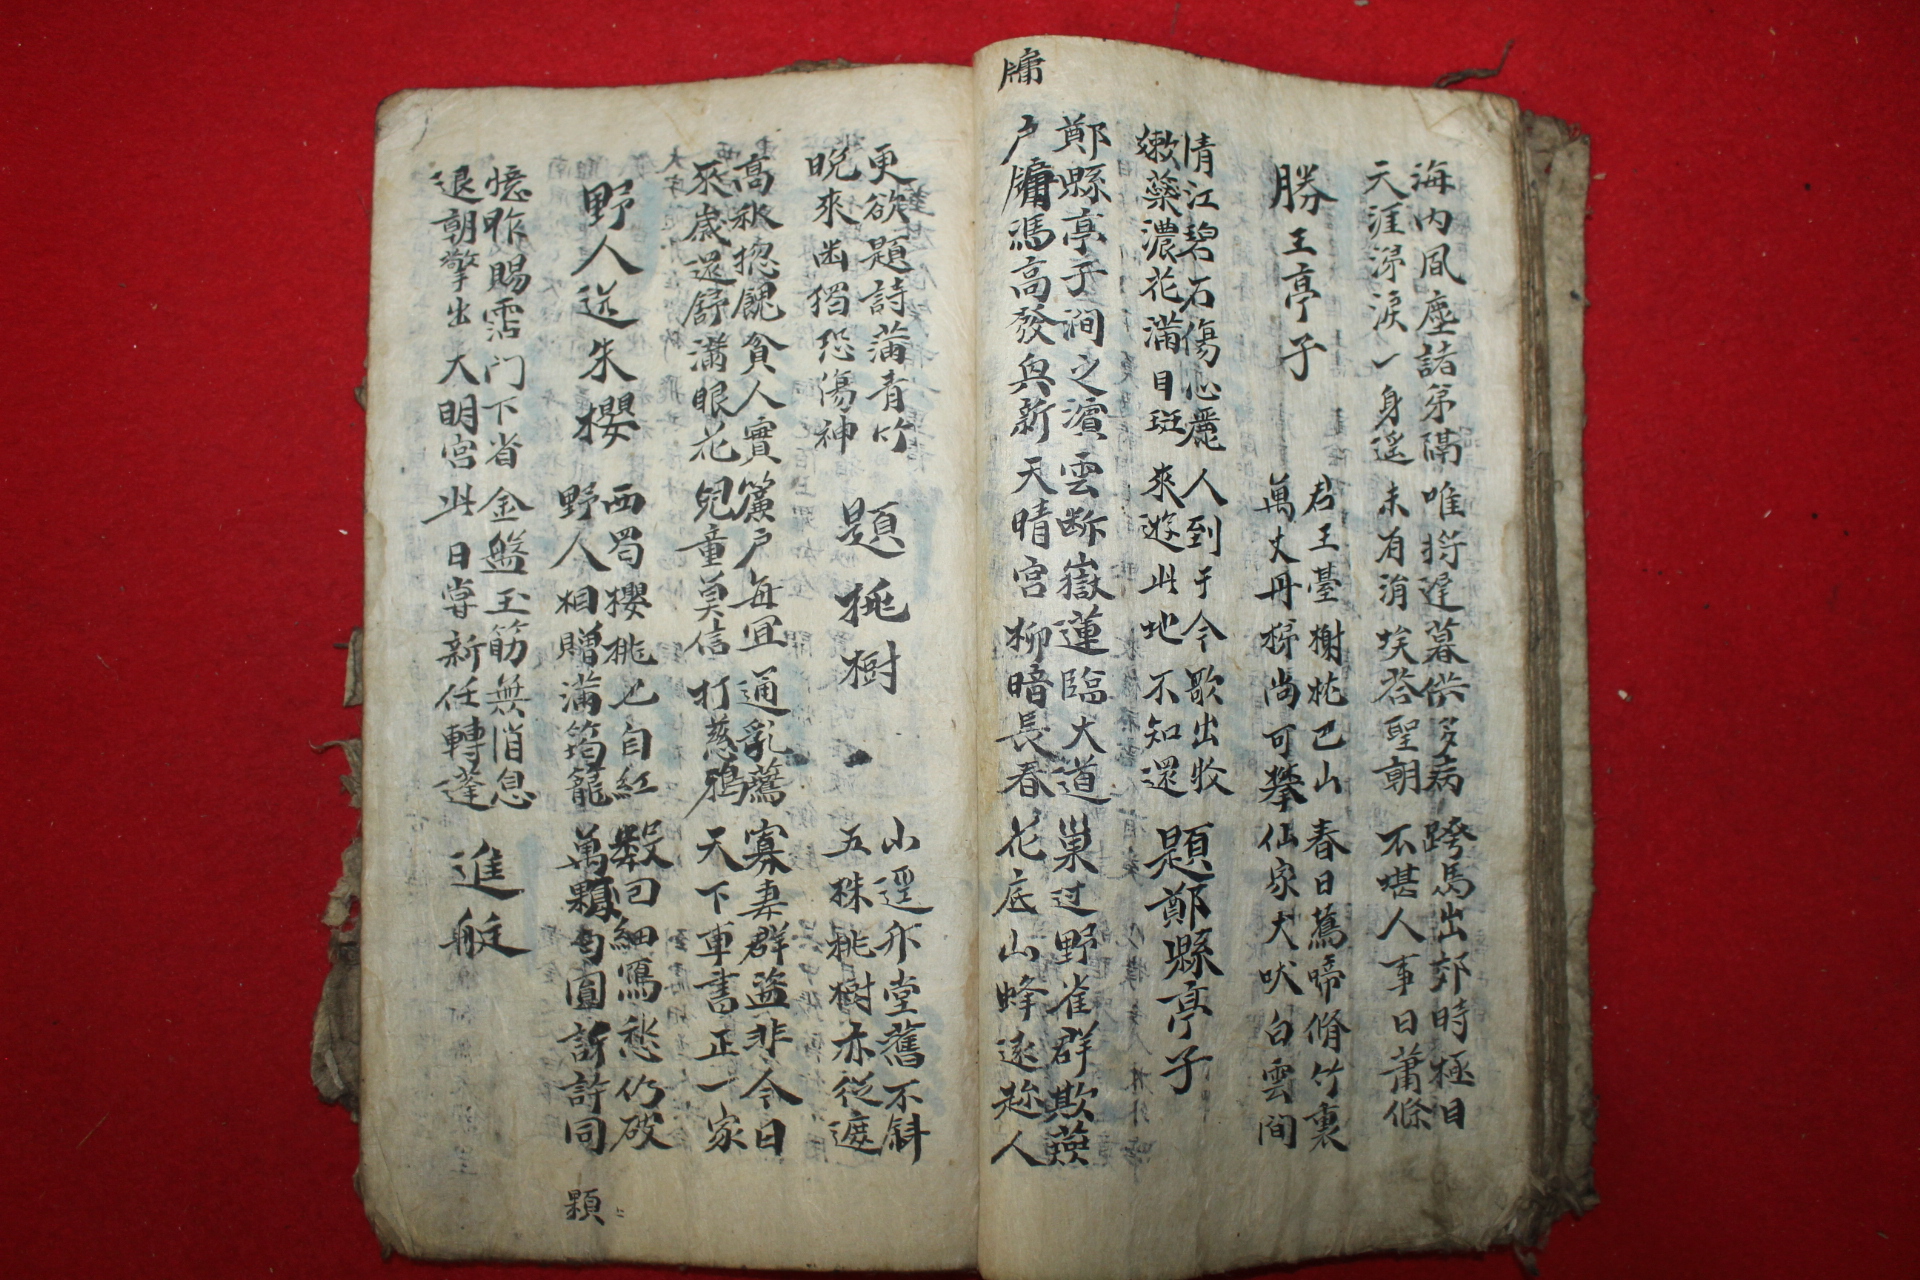 牖
海內風塵諸弟隔 唯將遅暮供多病 跨馬出郊時極目
天涯涕淚一身遙 未有涓埃答聖朝 不堪人事日蕭條
勝王亭子
君王臺榭枕巴山 春日鶯啼脩竹裏
萬丈丹梯尚可攀 仙家犬吠白雲間
清江碧石傷心麗 人到于今歌出牧
嫩蘂濃花滿目斑 來遊此地不知還
題鄭縣亭子
鄭縣亭子澗之濱 雲断嶽蓮臨大道 巢过野雀群欺燕
戶牖馮高發興新 天晴宮柳暗長春 花底山蜂遠趂人
更欲題詩蒲青竹
晩來凾獨恐傷神
題桃樹
小逕升堂舊不斜
五株桃樹亦從遮
高秋揔餽貧人實 簾戶每宜通乳薦 寡妻群盜非今日
來歲還舒滿眼花 兒童莫信打慈鴉 天下車書正一家
野人送朱櫻
西蜀櫻桃也自紅 數囘細寫愁仍破
野人相贈滿筠籠 萬顆匀圓訝許同
顆
憶昨賜霑门下省 金盤玉筋無消息
退朝擎出大明宮 此日嘗新任轉蓬
進艇